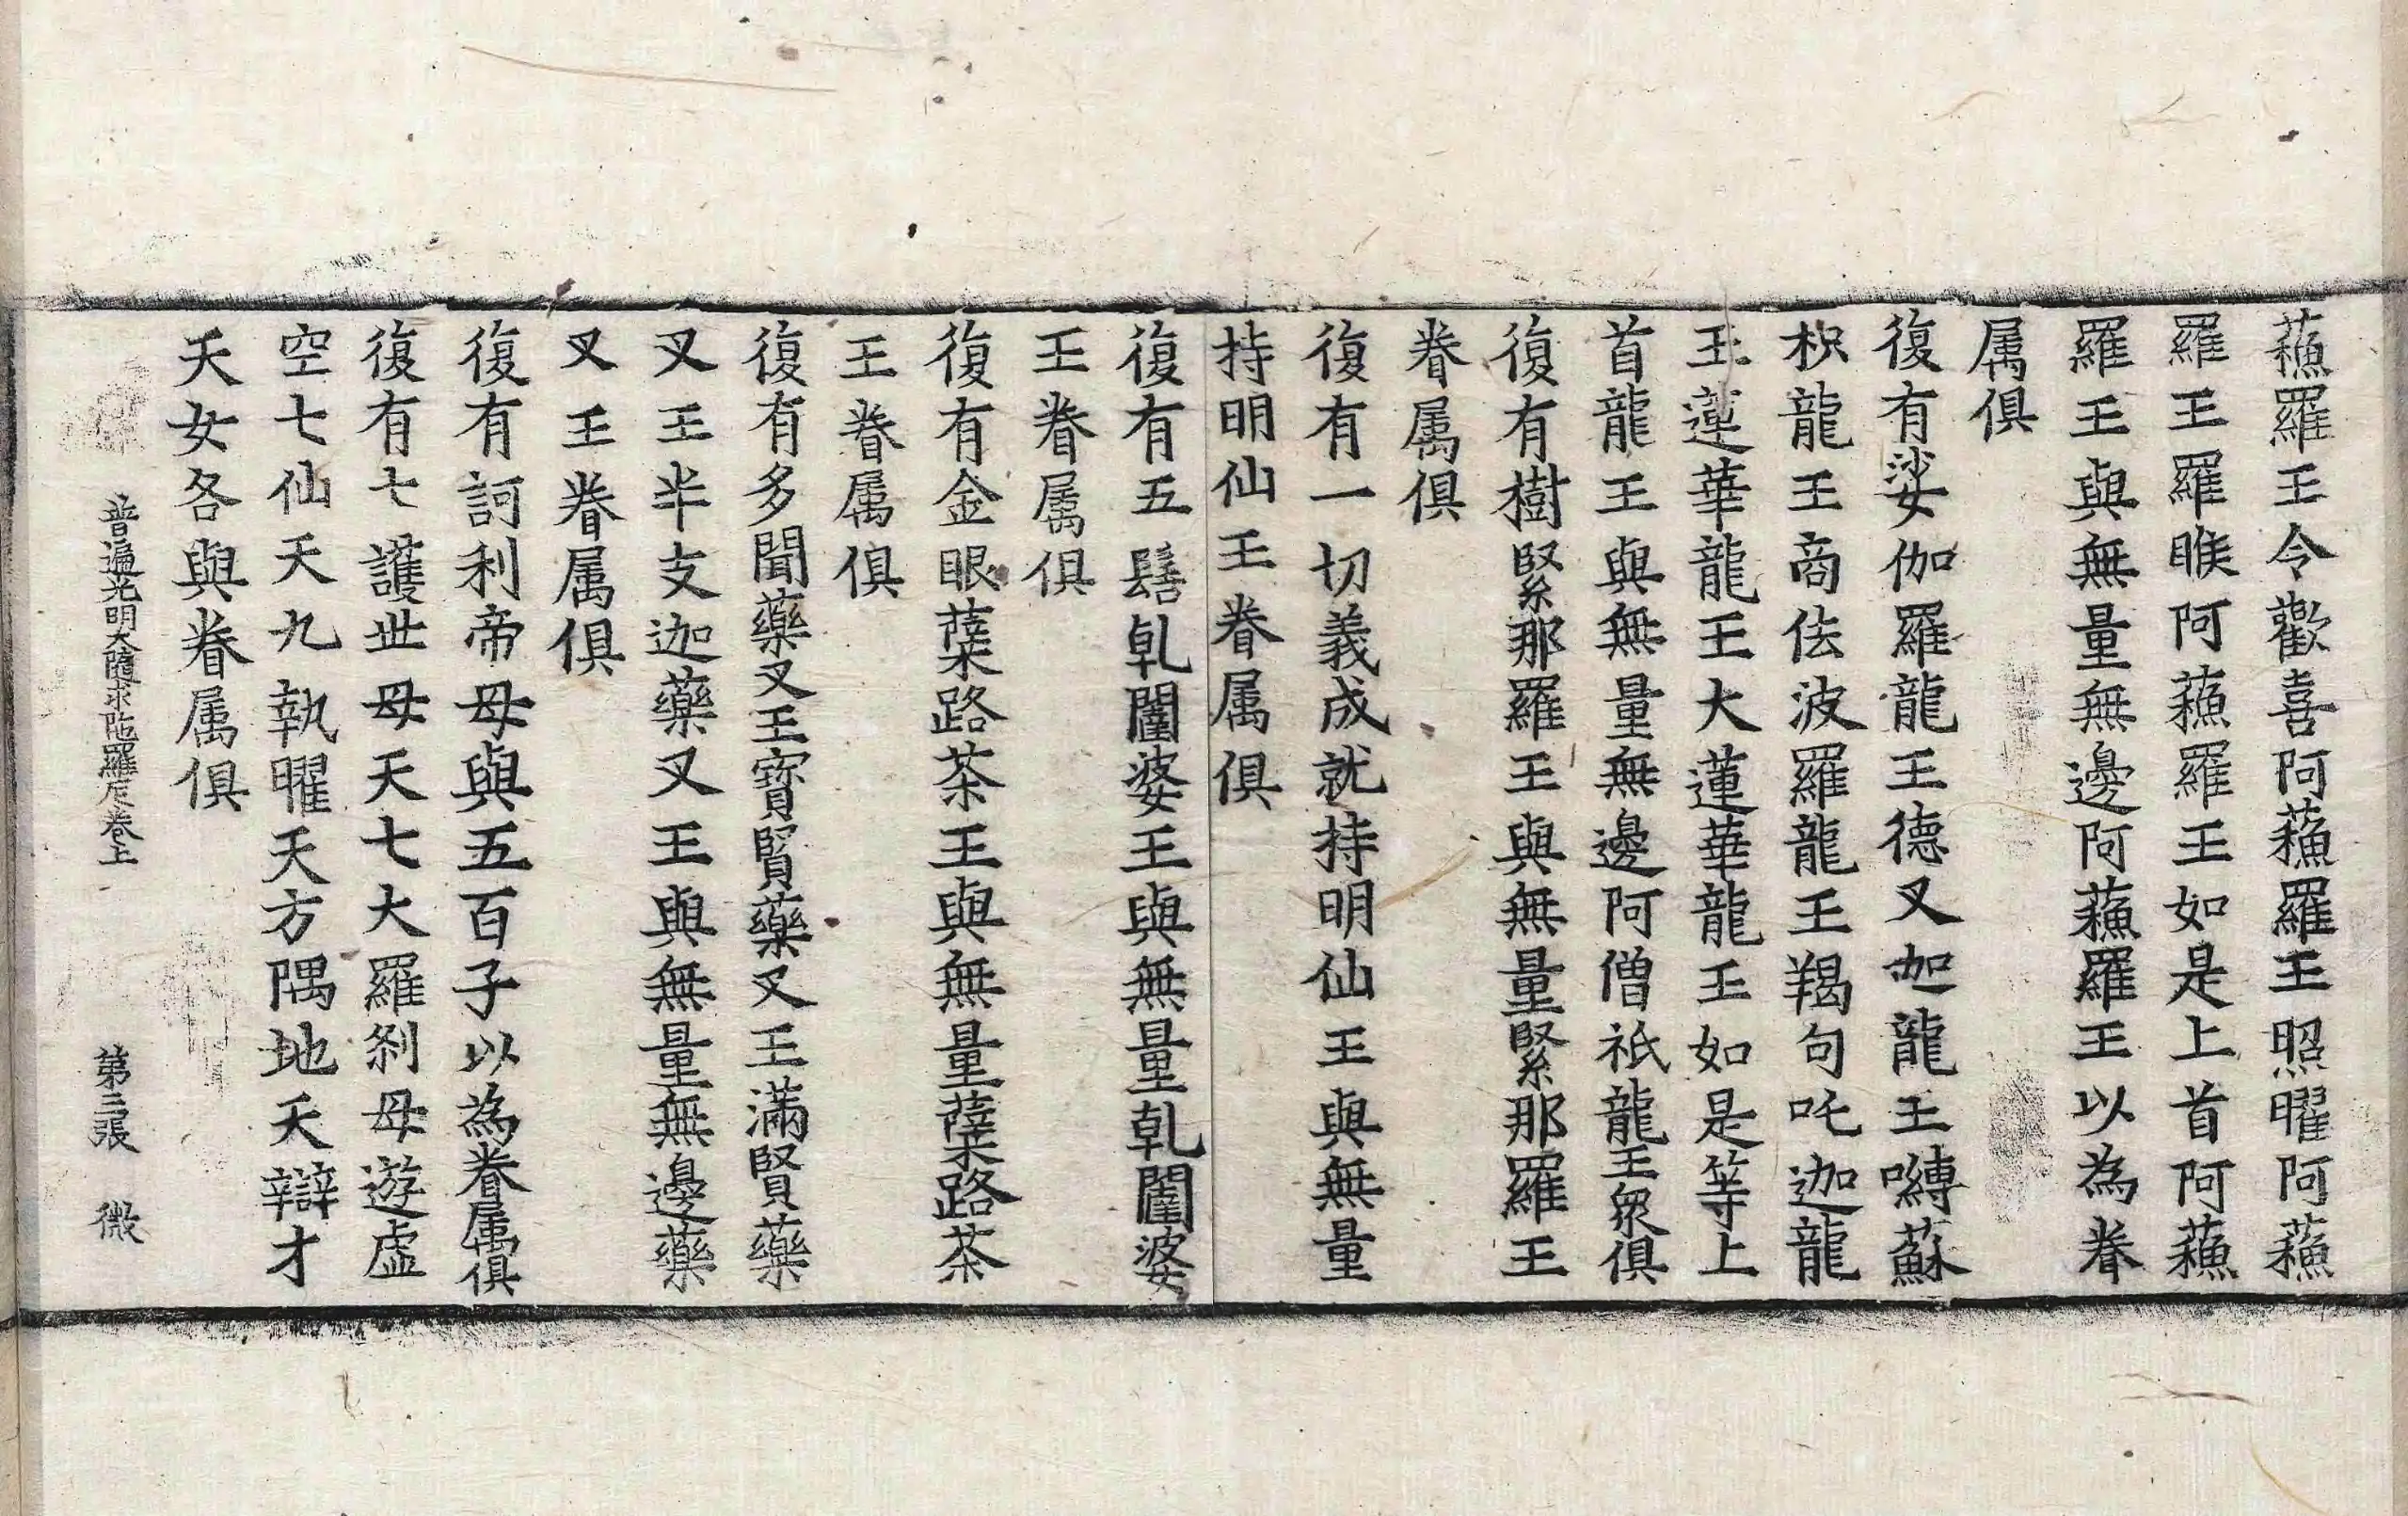 蘓羅王令歡喜阿蘓羅王照曜阿蘓
羅王羅睺阿蘓羅王如是上首阿蘓
羅王與無量無邊阿蘓羅王以為眷
属俱
復有娑伽羅龍王德叉迦龍王嚩蘇
枳龍王商佉波羅龍王羯句吒迦龍
王蓮華龍王大蓮華龍王如是等上
首龍王與無量無邊阿僧祇龍王衆俱
復有樹緊那羅王與無量緊那羅王
眷属俱
復有一切義成就持明仙王與無量
持明仙王眷属俱
復有五髻乹闥婆王與無量乹闥婆
王眷属俱
復有金眼蘗路茶王與無量蘗路茶
王眷属俱
復有多聞藥叉王寶賢藥叉王滿賢藥
叉王半支迦藥叉王與無量無邊藥
叉王眷属俱
復有訶利帝母與五百子以為眷属俱
復有七護世母天七大羅剎母遊虛
空七仙天九執曜天方隅地天辯才
天女各與眷属俱
普遍光明大隨求陁羅尼卷上　第三張　微